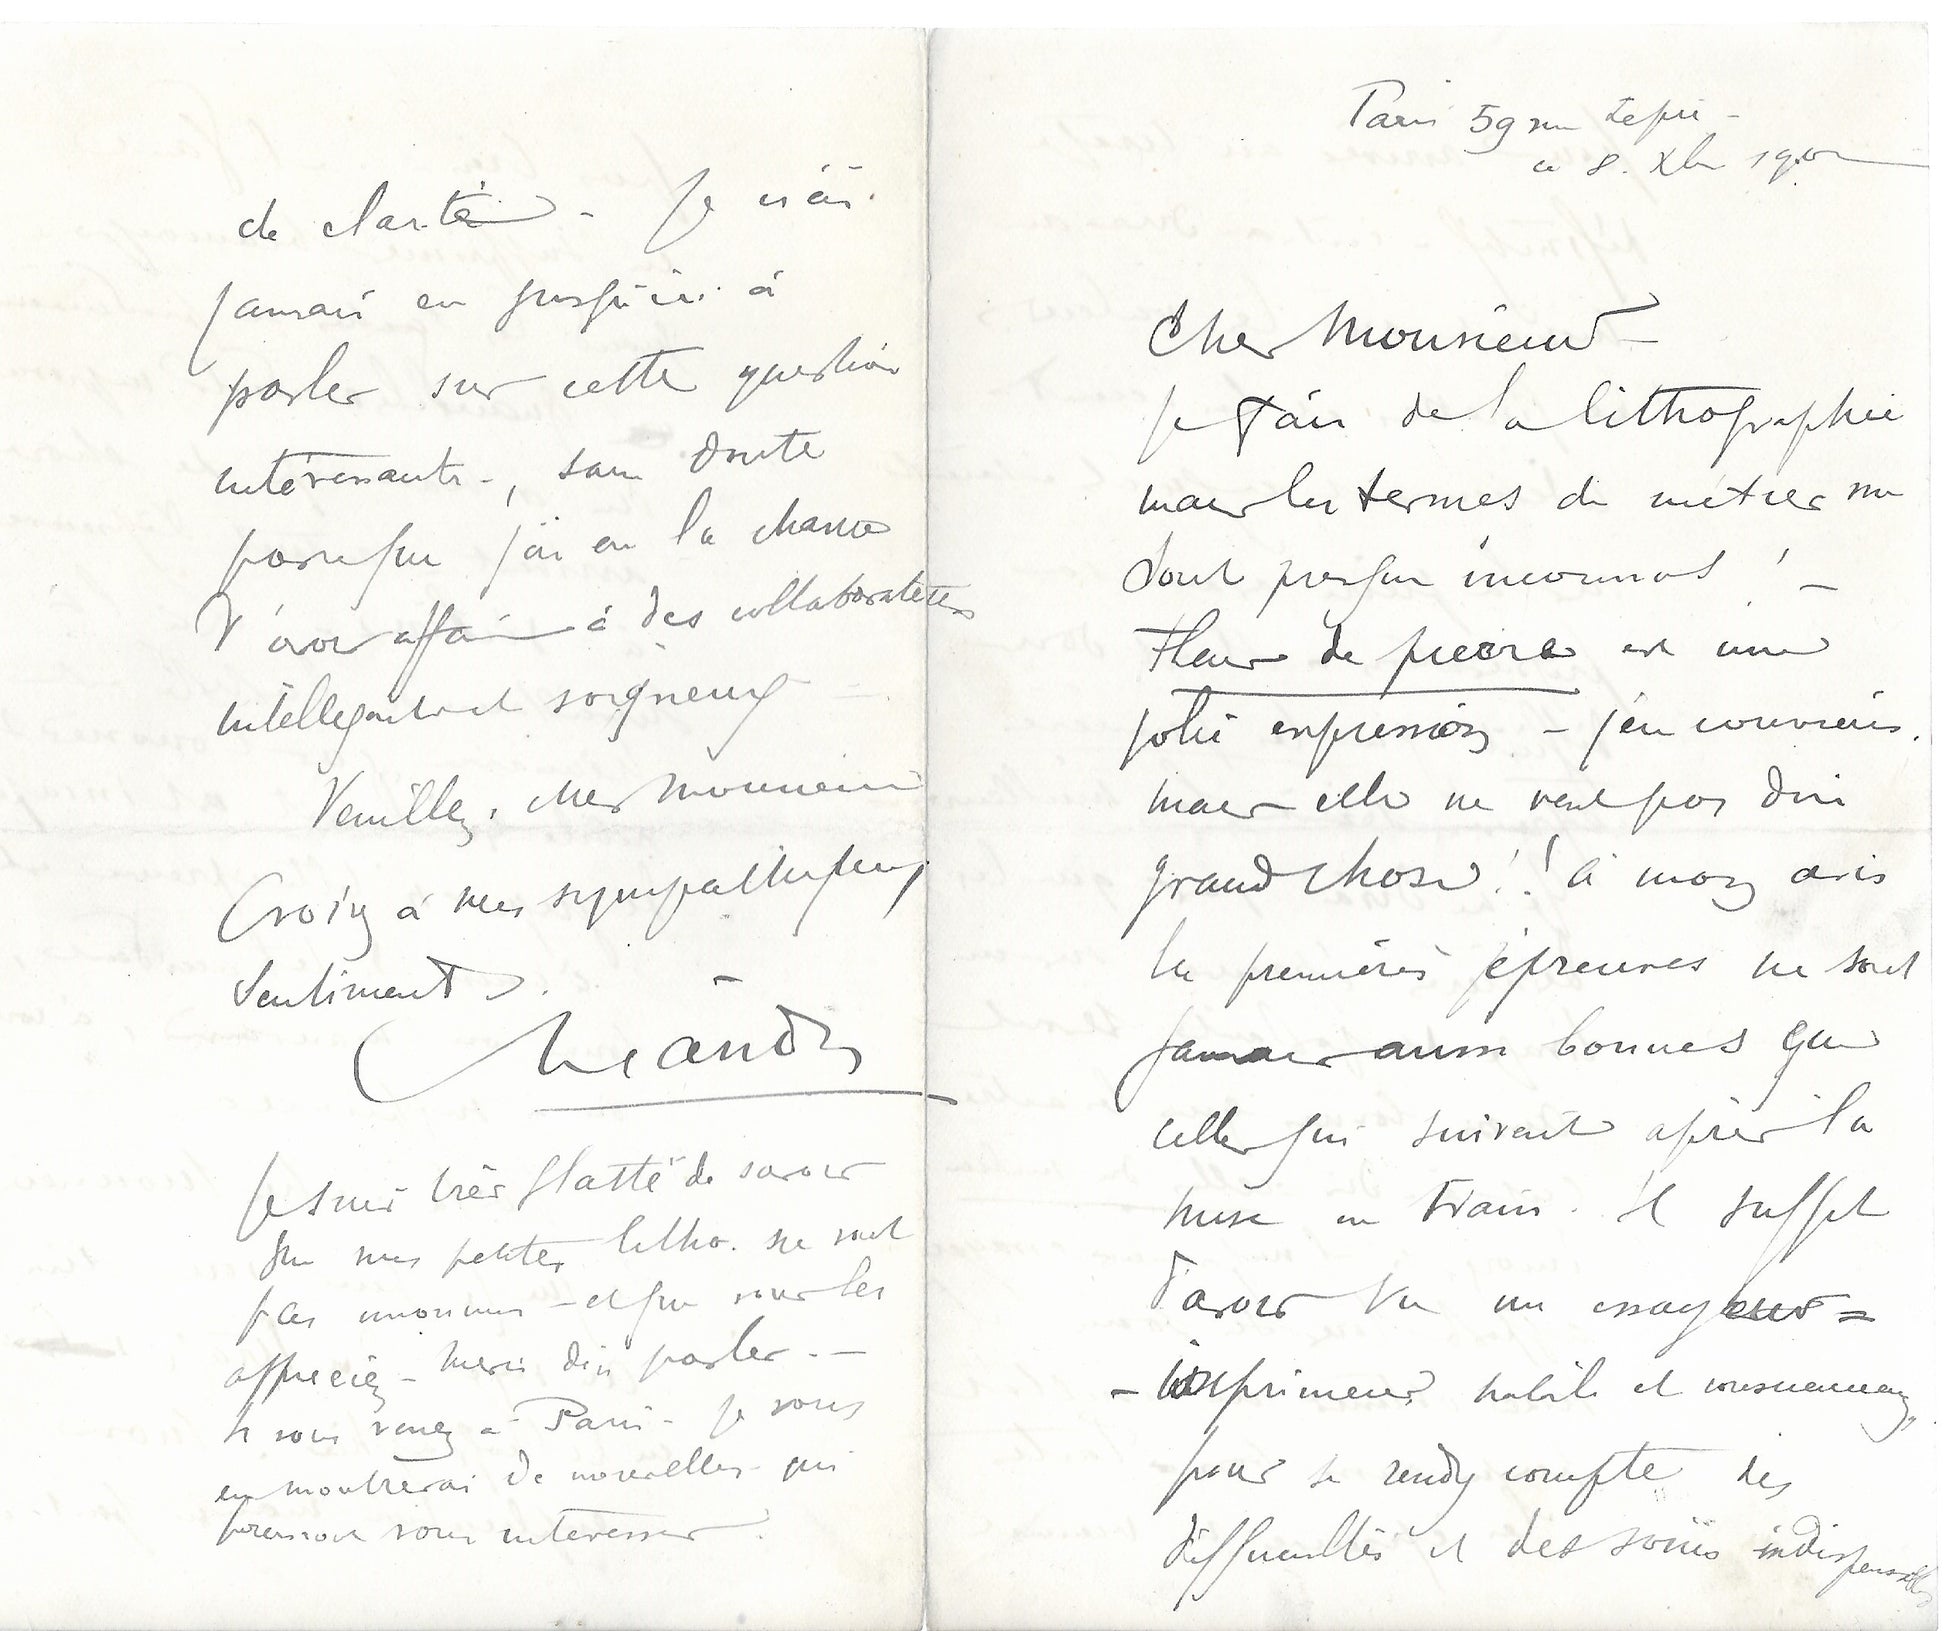 Paris 59 rue Lepic -
ce 8. Xbre
Cher Monsieur -
Je fais de la lithographie
mais les termes du métier me
sont presque inconnus ! -
Fleur de pierre est une
jolie expression - j'en conviens.
mais elle ne veut pas dire
grand chose ! ! à mon avis
les premières épreuves ne sont
jamais aussi bonnes que
celles qui suivent après la
mise en train. il suffit
d'avoir vu un essayeur =
- imprimeur habile et consciencieux,
pour se rendre compte des
difficultés et des soins indispensables
de clarté - Je n'ai
jamais eu jusqu'ici à
parler sur cette question
intéressante -, sans doute
parce que j'ai eu la chance
d'avoir affaire à des collaborateurs
intelligents et soigneux
Veuillez, cher Monsieur
Croire à mes sympathiques
sentiments.
Léandre
Je suis très flatté de savoir
que mes petites litho. ne sont
pas inconnues - et que vous les
appréciez - merci d'en parler. -
si vous venez à Paris - je vous
en montrerai de nouvelles qui
pourront vous intéresser.